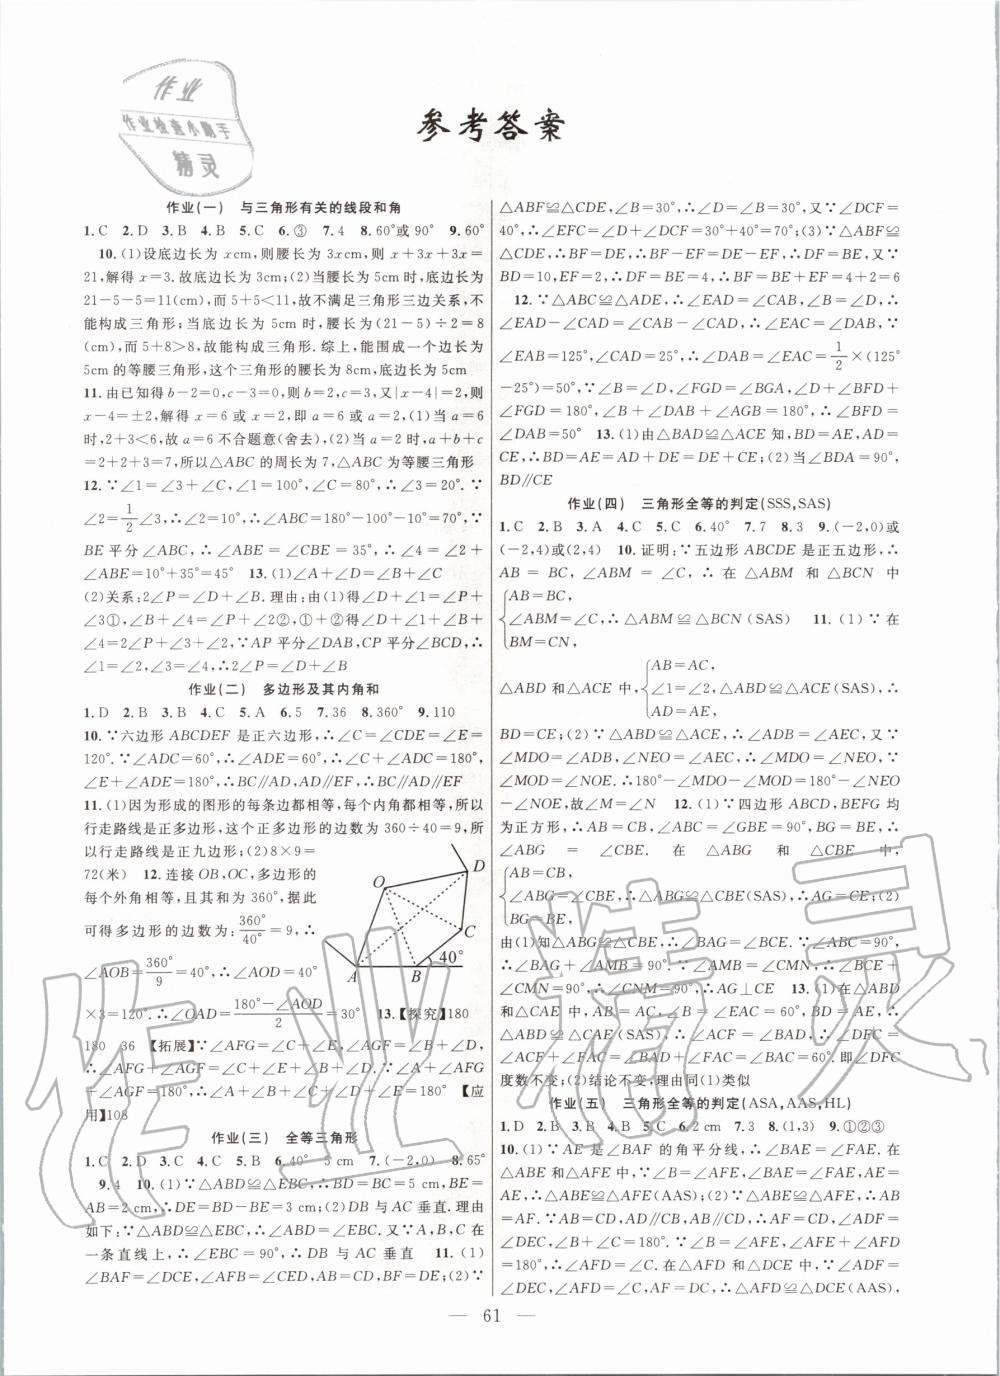 作业
作业检查小助手
精灵
参考答案
作业(一) 与三角形有关的线段和角
1.C 2.D 3.B 4.B 5.C 6.③ 7.4 8.60°或90° 9.60°
10.(1)设底边长为xcm,则腰长为3xcm,则 x+3x+3x=
21,解得x=3.故底边长为3cm;(2)当腰长为5cm时,底边长为
21-5-5=11(cm),而5+5<11,故不满足三角形三边关系,不
能构成三角形;当底边长为5cm时,腰长为(21-5)÷2=8
(cm),而5+8>8,故能构成三角形.综上,能围成一个边长为
5cm的等腰三角形,这个三角形的腰长为8cm,底边长为5cm
11.由已知得b-2=0,c-3=0,则b=2,c=3,又|x-4|=2,则
x-4=±2,解得x=6或x=2,即a=6或a=2,(1)当a=6
时,2+3<6,故a=6不合题意(舍去),(2)当a=2时,a+b+c
=2+2+3=7,所以△ABC的周长为7,△ABC为等腰三角形
12.∵∠1=∠3+∠C,∠1=100°,∠C=80°,∴∠3=20°.∵
∠2=1/2∠3,∴∠2=10°,∴∠ABC=180°-100°-10°=70°,∵
BE平分∠ABC,∴∠ABE=∠CBE=35°,∴∠4=∠2+
∠ABE=10°+35°=45° 13.(1)∠A+∠D=∠B+∠C
(2)关系:2∠P=∠B+∠D.理由:由(1)得∠D+∠1=∠P+
∠3①,∠B+∠4=∠P+∠2②,①+②得∠D+∠1+∠B+
∠4=2∠P+∠3+∠2,∵AP平分∠DAB,CP平分∠BCD,∴
∠1=∠2,∠3=∠4,∴2∠P=∠D+∠B
作业(二) 多边形及其内角和
1.D 2.B 3.B 4.C 5.A 6.5 7.36 8.360° 9.110
10.∵六边形ABCDEF是正六边形,∴∠C=∠CDE=∠E=
120°.∵∠ADC=60°,∴∠ADE=60°,∴∠C+∠ADC=180°,
∠E+∠ADE=180°,∴BC∥AD,AD∥EF,∴BC∥AD∥EF
11.(1)因为形成的图形的每条边都相等,每个内角都相等,所以
行走路线是正多边形,这个正多边形的边数为360÷40=9,所
以行走路线是正九边形;(2)8×9=
72(米) 12.连接OB,OC,多边形的
每个外角相等,且其和为360°,据此
可得多边形的边数为:360°/40°=9,∴
∠AOB=360°/9=40°,∴∠AOD=40°
×3=120°.∴∠OAD=(180°-∠AOD)/2=30° 13.【探究】180
180 36 【拓展】∵∠AFG=∠C+∠E,∠AGF=∠B+∠D,
∴∠AFG+∠AGF=∠C+∠E+∠B+∠D,∵∠A+∠AFG
+∠AGF=180°,∴∠A+∠B+∠C+∠D+∠E=180° 【应
用】108
O
D
C
A
B
40°
作业(三) 全等三角形
1.C 2.D 3.D 4.C 5.B 6.40° 5 cm 7.(-2,0) 8.65°
9.4 10.(1)∵△ABD≌△EBC,∴BD=BC=5 cm,BE=
AB=2 cm,∴DE=BD-BE=3cm;(2)DB与AC垂直.理由
如下:∵△ABD≌△EBC,∴∠ABD=∠EBC.又∵A,B,C在
一条直线上,∴∠EBC=90°,∴DB与AC垂直 11.(1)
∠BAF=∠DCE,∠AFB=∠CED,AB=CD,BF=DE;(2)∵
△ABF≌△CDE,∠B=30°,∴∠D=∠B=30°,又∵∠DCF=
40°,∴∠EFC=∠D+∠DCF=70°;(3)∵△ABF≌
△CDE,∴BF=DE,∴BF-EF=DE-EF,∴DF=BE,又∵
BD=10,EF=2,∴DF=BE=4,∴BF=BE+EF=4+2=6
12.∵△ABC≌△ADE,∴∠EAD=∠CAB,∠B=∠D,∴
∠EAD-∠CAD=∠CAB-∠CAD,∴∠EAC=∠DAB,∵
∠EAB=125°,∠CAD=25°,∴∠DAB=∠EAC=1/2×(125°
-25°)=50°,∵∠B=∠D,∠FGD=∠BGA,∠D+∠BFD+
∠FGD=180°,∠B+∠DAB+∠AGB=180°,∴∠BFD=
∠DAB=50° 13.(1)由△BAD≌△ACE知,BD=AE,AD=
CE,∴BD=AE=AD+DE=CE+DE;(2)当∠BDA=90°,
BD∥CE
作业(四) 三角形全等的判定(SSS,SAS)
1.C 2.B 3.A 4.C 5.C 6.40° 7.7 8.3 9.(-2,0)或
(-2,4)或(2,4) 10.证明:∵五边形ABCDE是正五边形,∴
AB=BC,∠ABM=∠C,∴在△ABM和△BCN中
AB=BC,
∠ABM=∠C,∴△ABM≌△BCN(SAS) 11.(1)∵在
BM=CN,
AB=AC,
△ABD和△ACE中,∠1=∠2,∴△ABD≌△ACE(SAS),∴
AD=AE,
BD=CE;(2)∵△ABD≌△ACE,∴∠ADB=∠AEC,又∵
∠MDO=∠ADB,∠NEO=∠AEC,∴∠MDO=∠NEO,∵
∠MOD=∠NOE.∴180°-∠MDO-∠MOD=180°-∠NEO
-∠NOE,故∠M=∠N 12.(1)∵四边形ABCD,BEFG均
为正方形,∴AB=CB,∠ABC=∠GBE=90°,BG=BE,∴
∠ABG=∠CBE.在△ABG和△CBE中,
AB=CB,
∠ABG=∠CBE,∴△ABG≌△CBE(SAS),∴AG=CE;(2)
BG=BE,
由(1)知△ABG≌△CBE,∴∠BAG=∠BCE.∵∠ABC=90°,
∴∠BAG+∠AMB=90°,∵∠AMB=∠CMN,∴∠BCE+
∠CMN=90°,∴∠CNM=90°,∴AG⊥CE 13.(1)在△ABD
和△CAE中,AB=AC,∠B=∠EAC=60°,BD=AE,∴
△ABD≌△CAE(SAS),∴∠ACF=∠BAD,∴∠DFC=
∠ACF+∠FAC=∠BAD+∠FAC=∠BAC=60°,即∠DFC
度数不变;(2)结论不变,理由同(1)类似
作业(五) 三角形全等的判定(ASA,AAS,HL)
1.D 2.B 3.B 4.B 5.C 6.2 cm 7.3 8.(1,3) 9.①②③
10.(1)∵AE是∠BAF的角平分线,∴∠BAE=∠FAE.在
△ABE和△AFE中,∵∠B=∠AFE,∠BAE=∠FAE,AE=
AE,∴△ABE≌△AFE(AAS);(2)∵△ABE≌△AFE,∴AB
=AF.∵AB=CD,AD∥CB,AB∥CD,∴AF=CD,∠ADF=
∠DEC,∠B+∠C=180°.∵∠B=∠AFE,∠AFE+∠AFD=
180°,∴∠AFD=∠C.在△AFD和△DCE中,∵∠ADF=
∠DEC,∠AFD=∠C,AF=CD,∴△AFD≌△DCE(AAS),
— 61 —
作业精灵